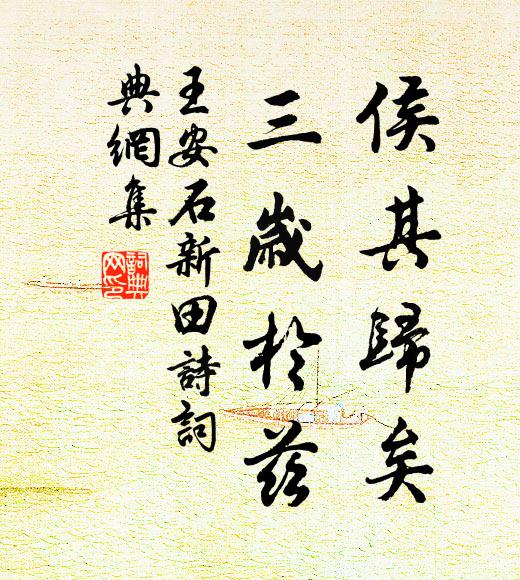 侯其歸矣
三歲於茲
王安石新田詩詞
典網集
詞典
網印